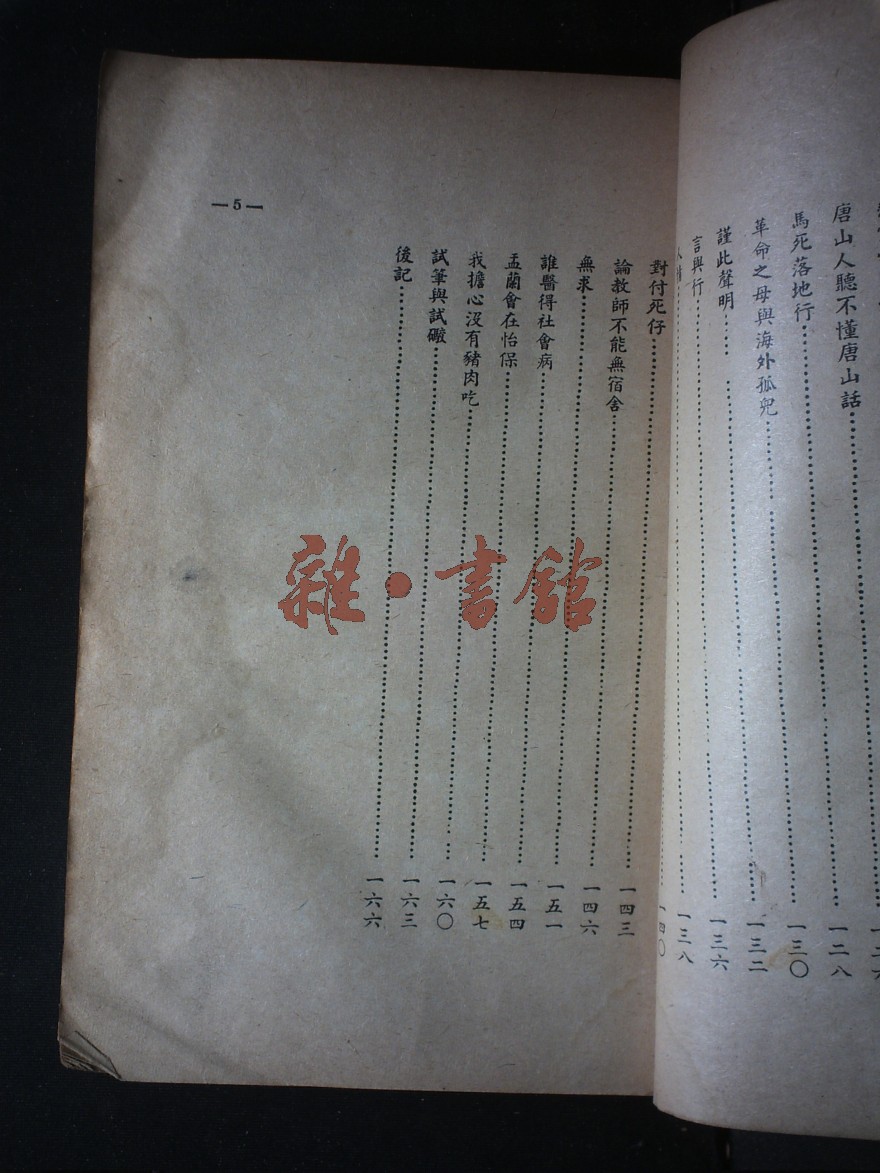 唐山人聽不懂唐山話……一二六
馬死落地行……一二八
革命之母與海外孤兒……一三〇
謹此聲明……一三二
言與行……一三六
一三八
一四〇
對付死仔……一四三
論教師不能無宿舍……一四六
無求……一五一
誰醫得社會病……一五四
盂蘭會在怡保……一五七
我擔心沒有豬肉吃……一六〇
試筆與試礮……一六三
後記……一六六
—5—
雜·書館